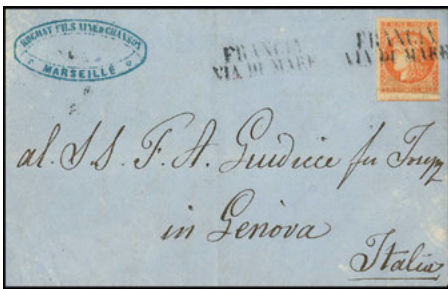 ROCHAT FILS AINÉ & CHANSON
MARSEILLE
FRANCIA
VIA DI MARE
FRANCIA
VIA DI MARE
al. S. S. F. A. Giudice fu
in Genova
Italia